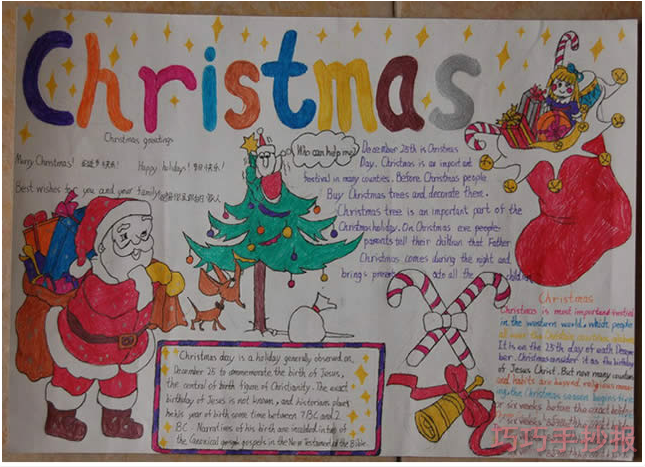 Christmas
Christmas greetings
Merry Christmas! 圣诞快乐!
Happy holidays! 节日快乐!
Best wishes for you and your family
Who can help me?
December 25th is Christmas
Day. Christmas is an important
festival in many countries. Before Christmas people
Buy Christmas trees and decorate them.
Christmas tree is an important part of the
Christmas holiday. On Christmas eve people
parents tell their children that Father
Christmas comes during the night and
brings to all the children
Christmas day is a holiday generally observed on
December 25 to commemorate the birth of Jesus,
the central of birth figure of Christianity. The exact
birthday of Jesus is not known, and historians place
he his year of birth some time between 7 BC and 2
BC. Narratives of his birth are included in two of
the Canonical gospels in the New Testament of the Bible.
Christmas
Christmas is most important festival
in the western world, which people
It is on the 25th day of each Decem
ber. Christmas consider it as the birthday
of Jesus Christ. But now many countries
and habits are beyond religious mean
ing. the Christmas season begins five
or six weeks before the exact holiday
巧巧手抄报